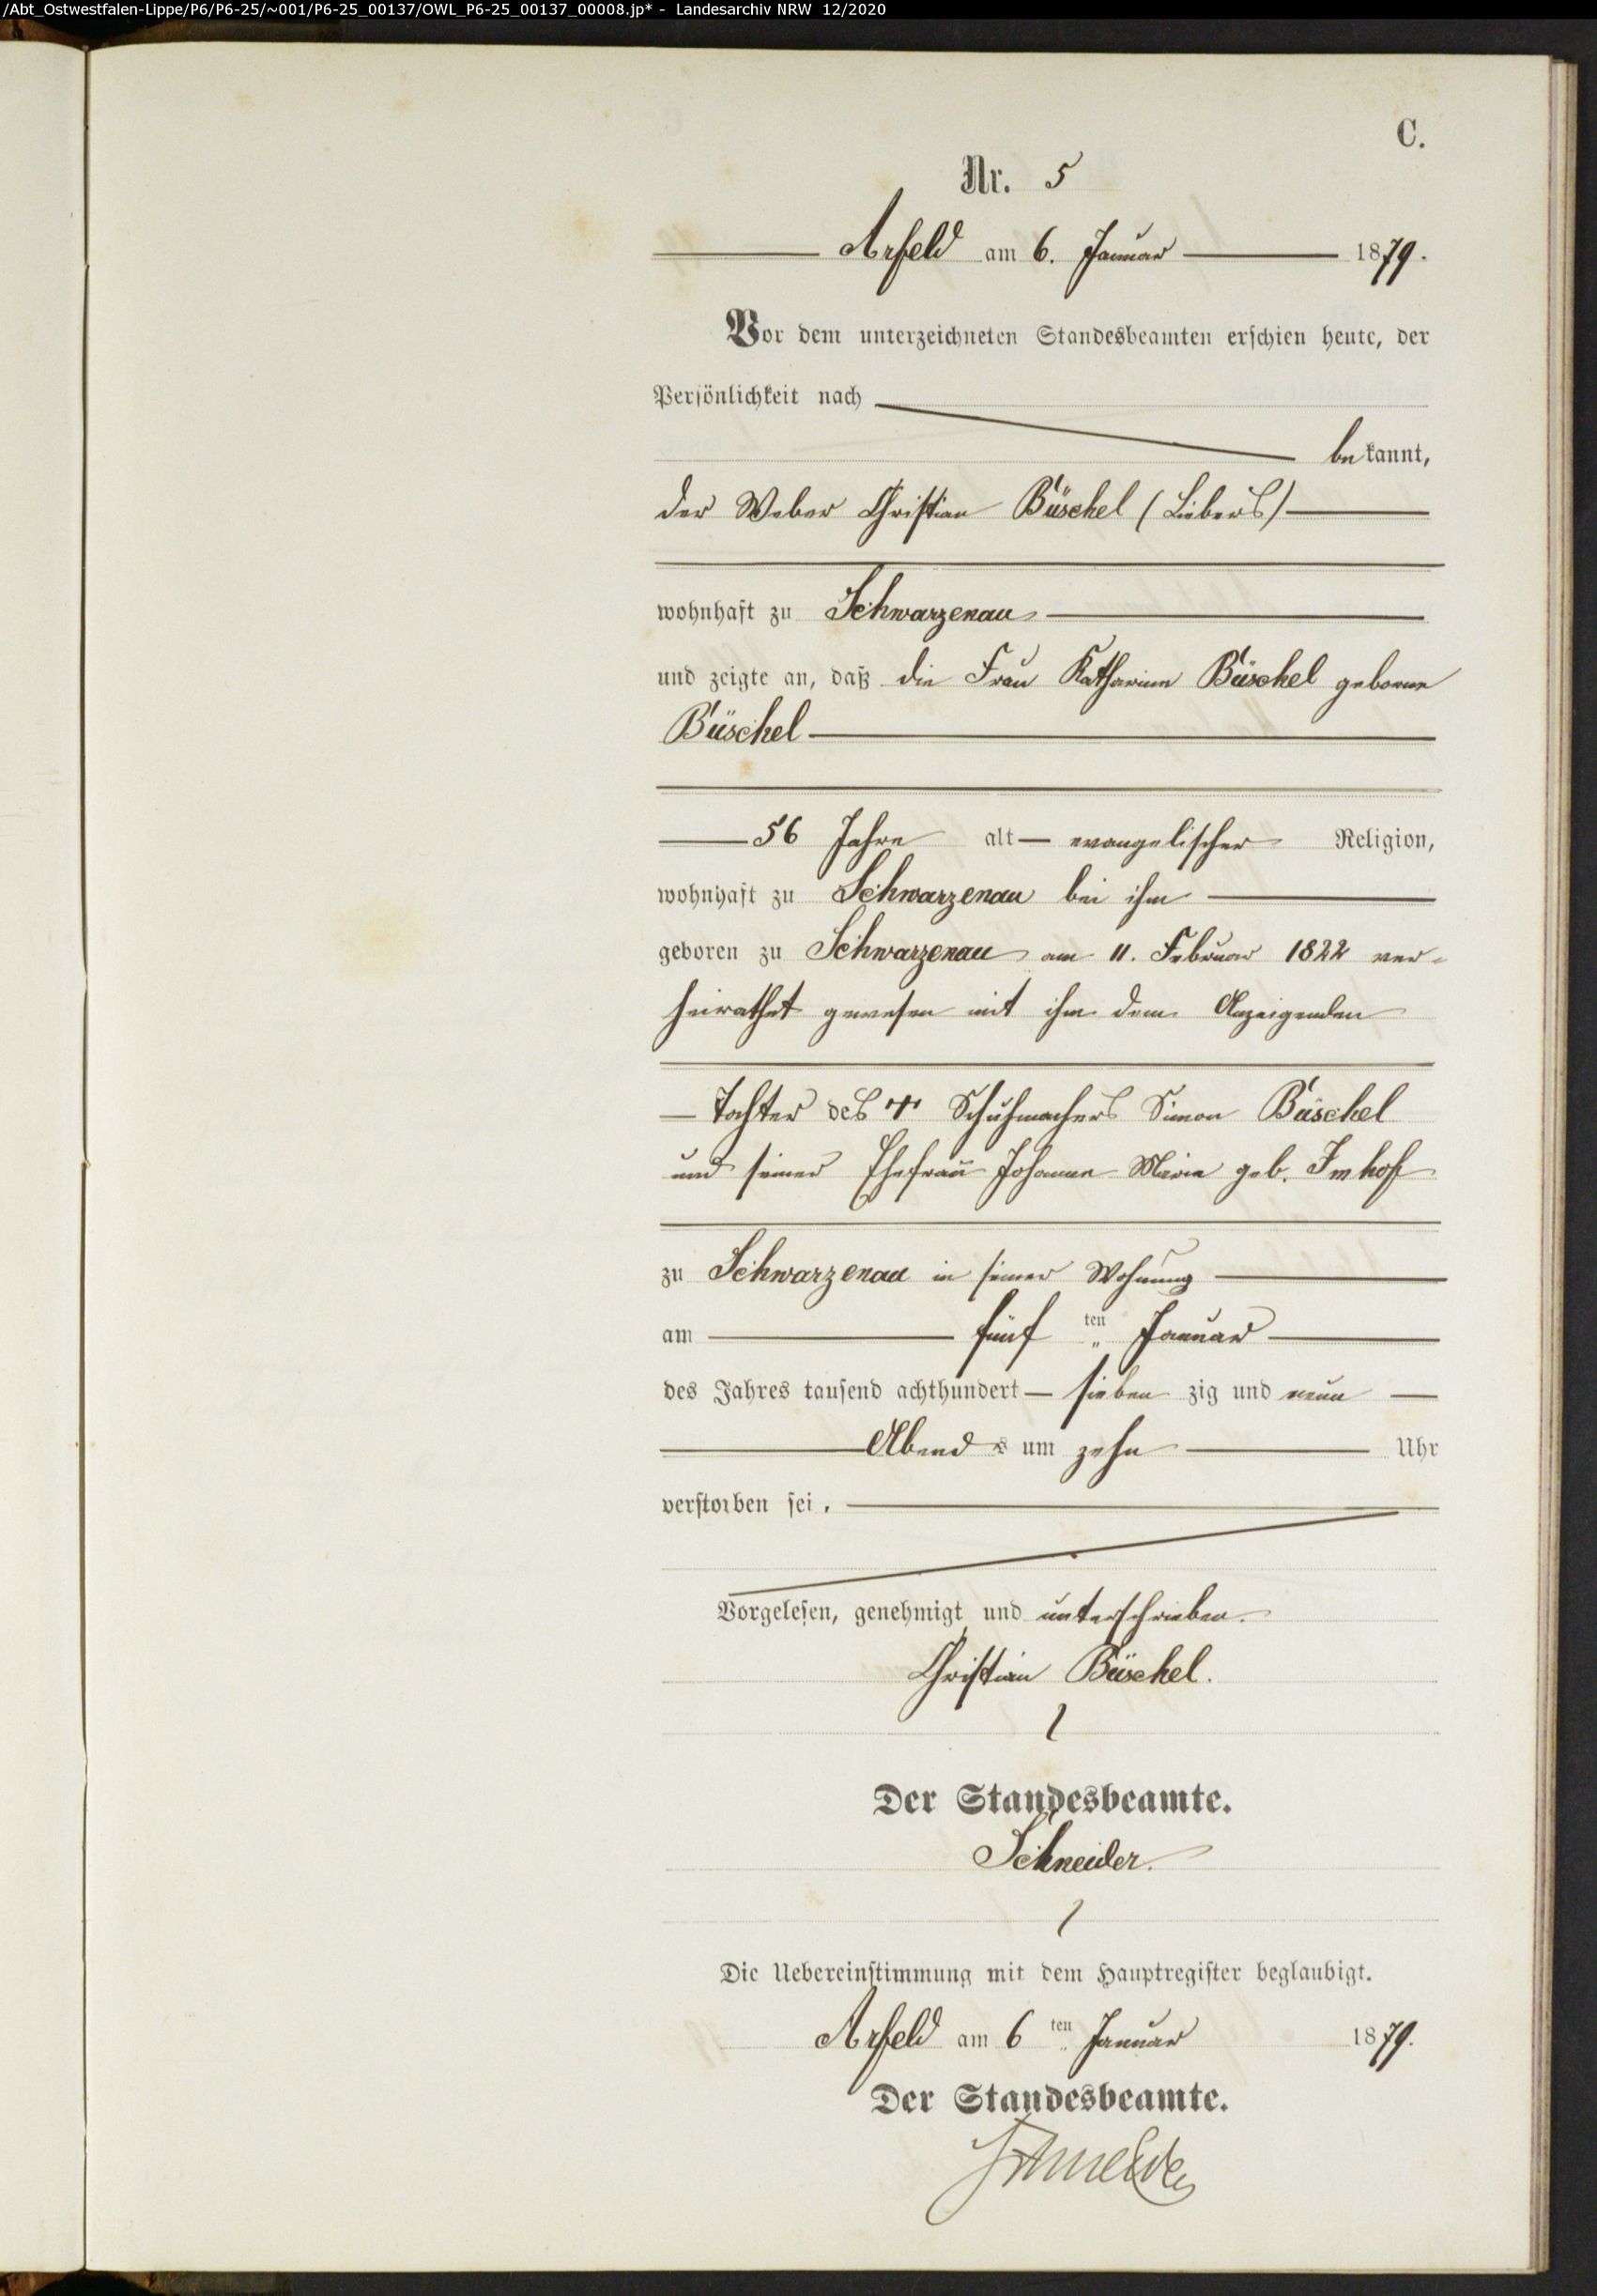 /Abt_Ostwestfalen-Lippe/P6/P6-25/~001/P6-25_00137/OWL_P6-25_00137_00008.jp* - Landesarchiv NRW 12/2020
C.
Nr. 5
Arfeld am 6. Januar 1879.
Vor dem unterzeichneten Standesbeamten erschien heute, der
Persönlichkeit nach
bekannt,
der Weber Christian Büschel (Liebers)
wohnhaft zu Schwarzenau
und zeigte an, daß die Frau Katharine Büschel geborne
Büschel
56 Jahre alt evangelischer Religion,
wohnhaft zu Schwarzenau bei ihm
geboren zu Schwarzenau am 11. Februar 1822 ver-
heirathet gewesen mit ihm dem Anzeigenden
Tochter des † Schuhmachers Simon Büschel
und seiner Ehefrau Johanne Marie geb. Imhof
zu Schwarzenau in seiner Wohnung
am fünf ten Januar
des Jahres tausend achthundert sieben zig und neun
Abends um zehn Uhr
verstorben sei.
Vorgelesen, genehmigt und unterschrieben.
Christian Büschel.
Der Standesbeamte.
Schneider.
Die Uebereinstimmung mit dem Hauptregister beglaubigt.
Arfeld am 6 ten Januar 1879.
Der Standesbeamte.
Schneider